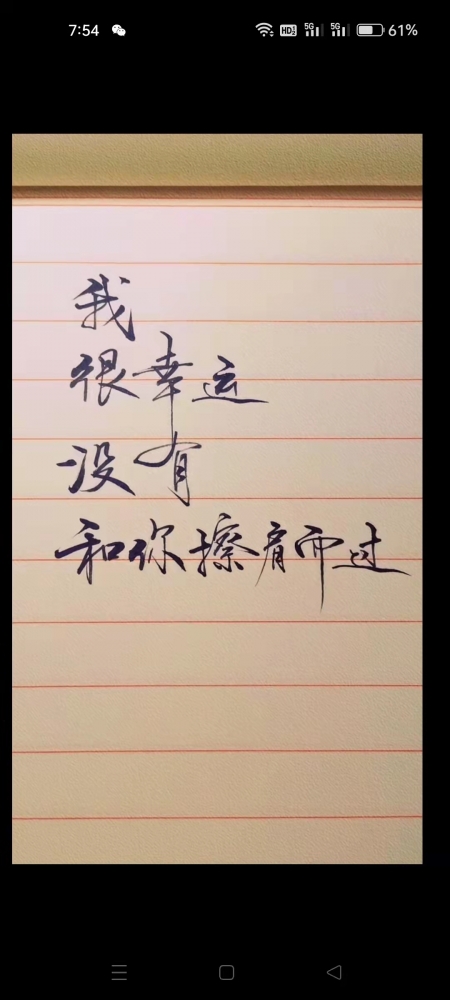 7:54
HD 5G 5G 61%
我
很幸运
没有
和你擦肩而过